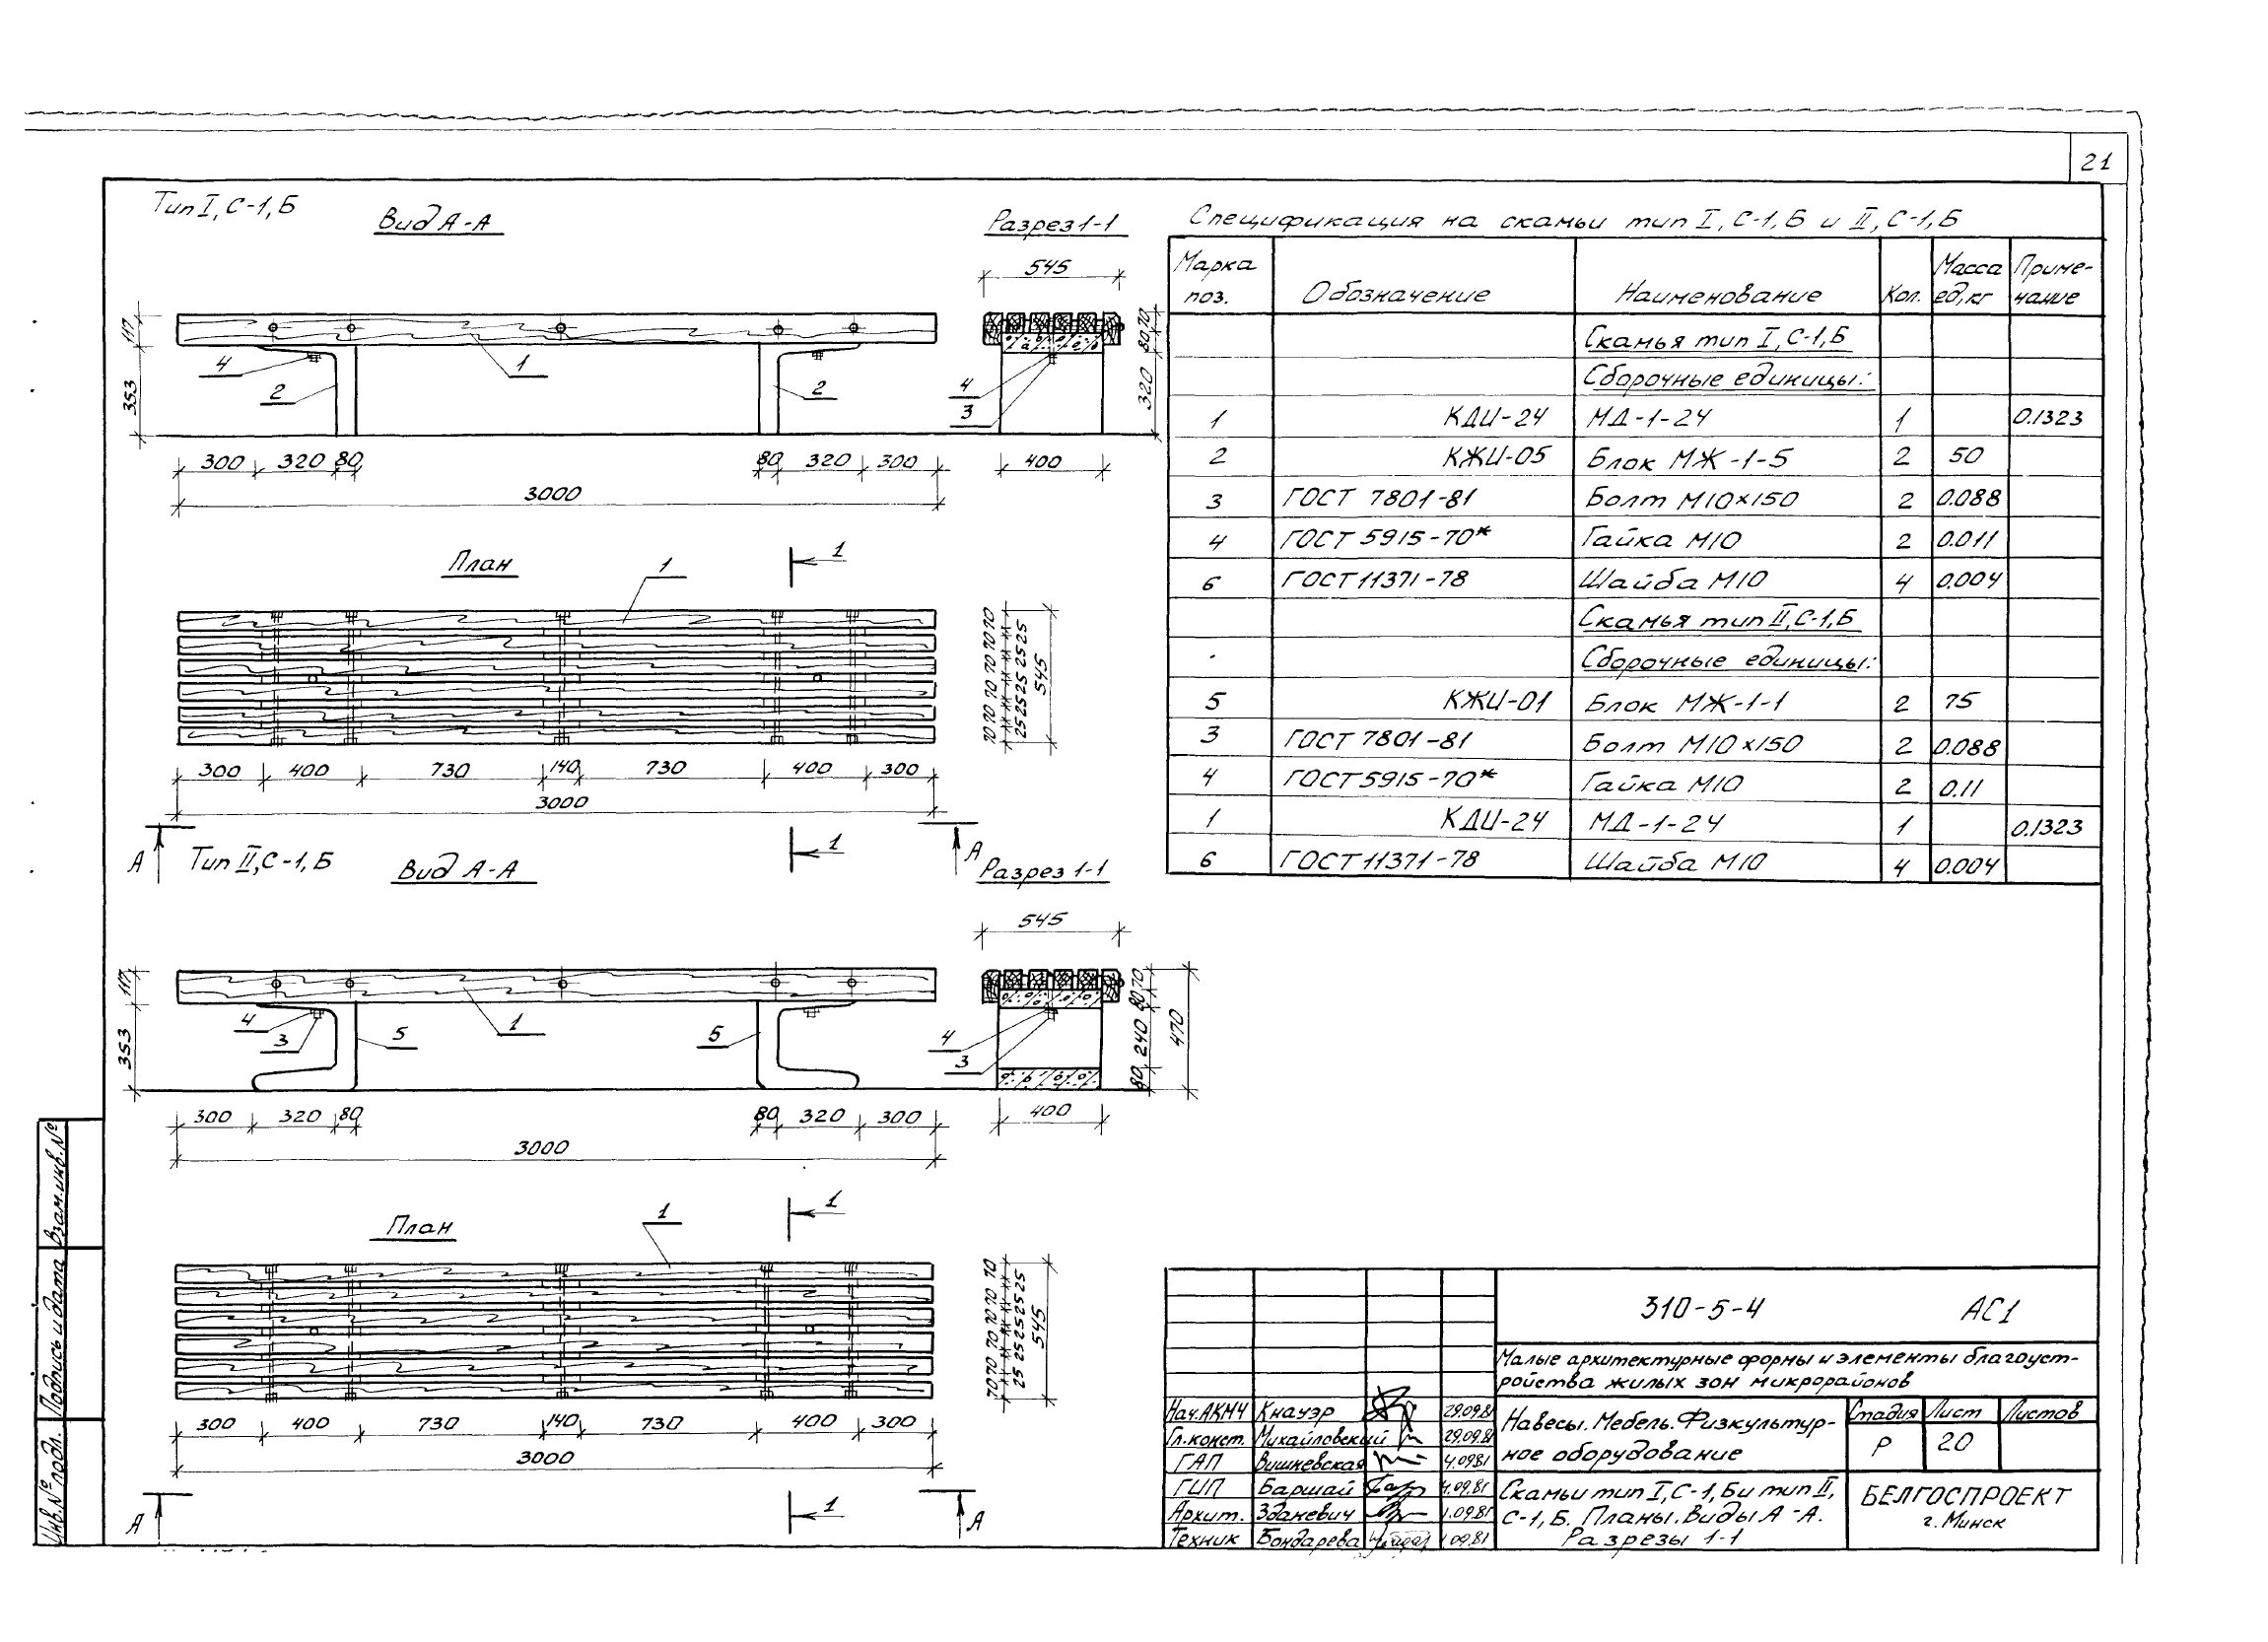 21
Тип I, С-1, Б
Вид А-А
Разрез 1-1
545
117
353
4
2
1
2
4
3
70
80
320
300 320 80 80 320 300
3000
400
План
1
1
70 70 70 70 70 70
25 25 25 25 25
545
300 400 730 140 730 400 300
3000
А
1
А
Тип II, С-1, Б
Вид А-А
Разрез 1-1
545
117
353
4
3
5
1
5
4
3
70
80
240
80
470
300 320 80 80 320 300
3000
400
План
1
1
70 70 70 70 70 70
25 25 25 25 25
545
300 400 730 140 730 400 300
3000
А
1
А
Спецификация на скамьи тип I, С-1, Б и II, С-1, Б
Марка поз. Обозначение Наименование Кол. Масса ед, кг Приме-чание
Скамья тип I, С-1, Б
Сборочные единицы:
1 КДИ-24 МД-1-24 1 0.1323
2 КЖИ-05 Блок МЖ-1-5 2 50
3 ГОСТ 7801-81 Болт М10×150 2 0.088
4 ГОСТ 5915-70* Гайка М10 2 0.011
6 ГОСТ 11371-78 Шайба М10 4 0.004
Скамья тип II, С-1, Б
Сборочные единицы:
5 КЖИ-01 Блок МЖ-1-1 2 75
3 ГОСТ 7801-81 Болт М10×150 2 0.088
4 ГОСТ 5915-70* Гайка М10 2 0.11
1 КДИ-24 МД-1-24 1 0.1323
6 ГОСТ 11371-78 Шайба М10 4 0.004
310-5-4 АС1
Малые архитектурные формы и элементы благоуст-
ройства жилых зон микрорайонов
Нач.АКМЧ Кнауэр 29.09.81
Гл.конст. Михайловский 29.09.81
ГАП Вишневская 4.0981
ГИП Баршай 4.09.81
Архит. Зданевич 1.09.81
Техник Бондарева 1.09.81
Навесы. Мебель. Физкультур-
ное оборудование
Стадия Лист Листов
Р 20
Скамьи тип I, С-1, Б и тип II,
С-1, Б. Планы. Виды А-А.
Разрезы 1-1
БЕЛГОСПРОЕКТ
г. Минск
Взам.инв.№
Подпись и дата
Инв.№ подл.